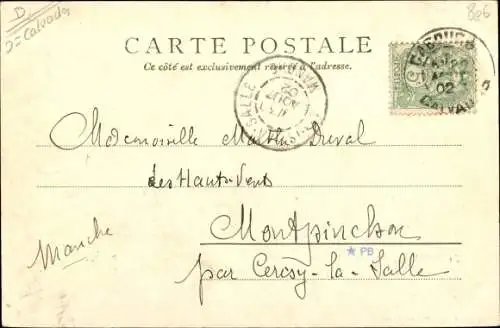 D
D= Calvados
806
CARTE POSTALE
Ce côté est exclusivement réservé à l'adresse.
CABOURG
02
CALVADOS
LA SALLE
MANCHE
AOUT
02
Mademoiselle Duval
des Hauts-Vents
Montpinchon
Manche
par Cerisy-la-Salle
PB